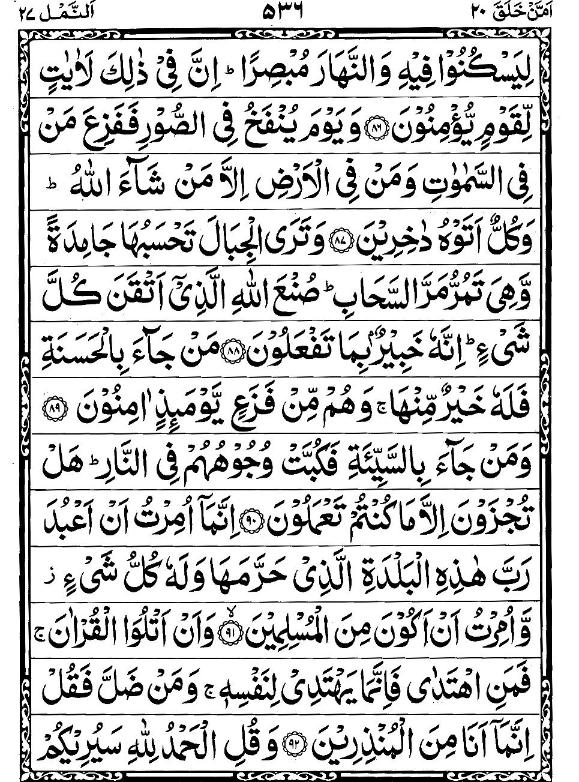 اَمَّنْ خَلَقَ ٢٠ ٥٣٦ اَلنَّمْل ٢٧
لِيَسْكُنُوْا فِيْهِ وَالنَّهَارَ مُبْصِرًا ؕ اِنَّ فِيْ ذٰلِكَ لَاٰيٰتٍ
لِّقَوْمٍ يُّؤْمِنُوْنَ ﴿٨٦﴾ وَيَوْمَ يُنْفَخُ فِي الصُّوْرِ فَفَزِعَ مَنْ
فِي السَّمٰوٰتِ وَمَنْ فِي الْاَرْضِ اِلَّا مَنْ شَآءَ اللّٰهُ ؕ
وَكُلٌّ اَتَوْهُ دٰخِرِيْنَ ﴿٨٧﴾ وَتَرَى الْجِبَالَ تَحْسَبُهَا جَامِدَةً
وَّهِيَ تَمُرُّ مَرَّ السَّحَابِ ؕ صُنْعَ اللّٰهِ الَّذِيْٓ اَتْقَنَ كُلَّ
شَيْءٍ ؕ اِنَّهٗ خَبِيْرٌۢ بِمَا تَفْعَلُوْنَ ﴿٨٨﴾ مَنْ جَآءَ بِالْحَسَنَةِ
فَلَهٗ خَيْرٌ مِّنْهَا ۚ وَهُمْ مِّنْ فَزَعٍ يَّوْمَئِذٍ اٰمِنُوْنَ ﴿٨٩﴾
وَمَنْ جَآءَ بِالسَّيِّئَةِ فَكُبَّتْ وُجُوْهُهُمْ فِي النَّارِ ؕ هَلْ
تُجْزَوْنَ اِلَّا مَا كُنْتُمْ تَعْمَلُوْنَ ﴿٩٠﴾ اِنَّمَآ اُمِرْتُ اَنْ اَعْبُدَ
رَبَّ هٰذِهِ الْبَلْدَةِ الَّذِيْ حَرَّمَهَا وَلَهٗ كُلُّ شَيْءٍ ز
وَّاُمِرْتُ اَنْ اَكُوْنَ مِنَ الْمُسْلِمِيْنَ ﴿٩١﴾ۙ وَاَنْ اَتْلُوَا الْقُرْاٰنَ ۚ
فَمَنِ اهْتَدٰى فَاِنَّمَا يَهْتَدِيْ لِنَفْسِهٖ ۚ وَمَنْ ضَلَّ فَقُلْ
اِنَّمَآ اَنَا مِنَ الْمُنْذِرِيْنَ ﴿٩٢﴾ وَقُلِ الْحَمْدُ لِلّٰهِ سَيُرِيْكُمْ